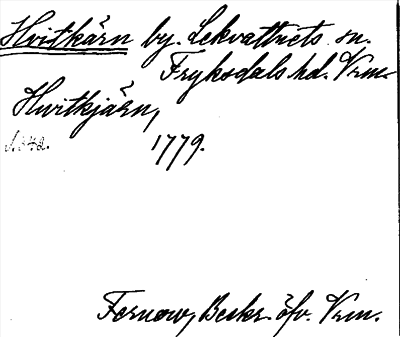 Hvitkärn by. Lekvattnets sn.
Fryksdals hd. Vrm.
Hvitkjärn,
1779.
Fernow, Beskr. öfv. Vrm.